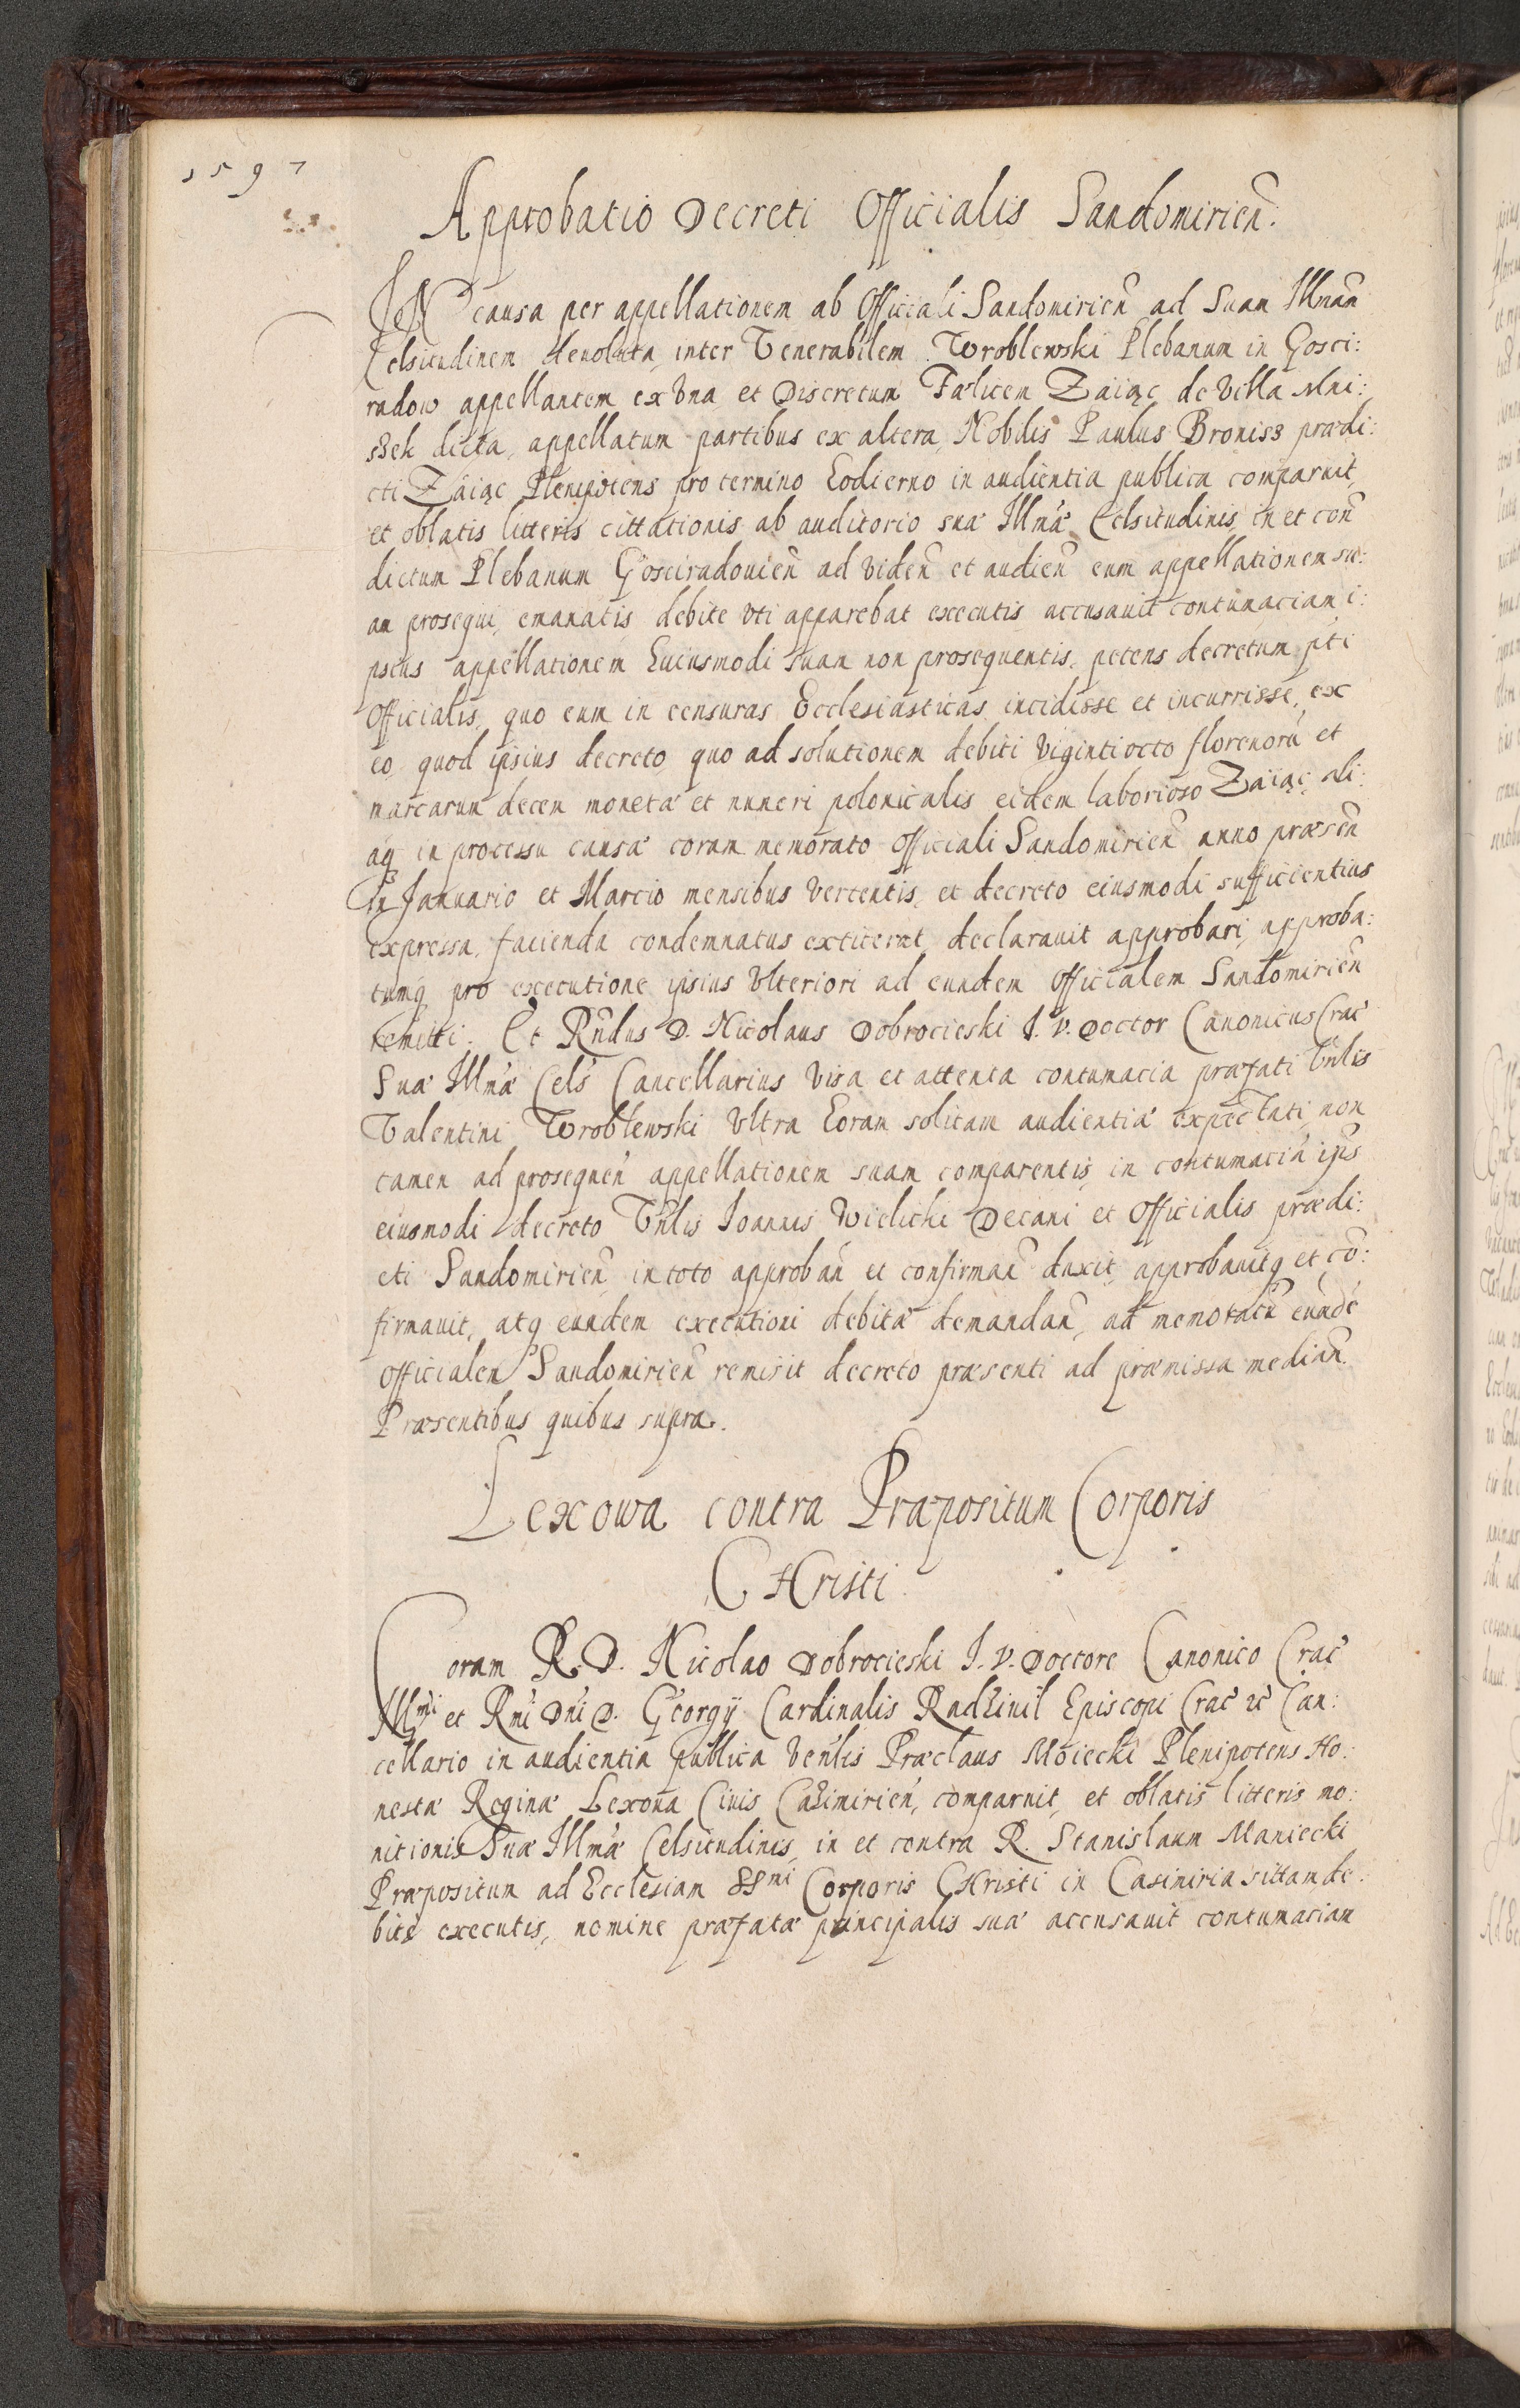 1597
Approbatio Decreti Officialis Sandomirien̄.
IN causa per appellationem ab Officiali Sandomirien̄ ad Suam Illmam̄
Celsitudinem devoluta, inter Venerabilem Wroblewski Plebanum in Gosci:
radow appellantem ex Vna et Discretum Fælicem Zaiąc de Villa Mni:
szek dicta, appellatum partibus ex altera, Nobilis Paulus Bronisz prædi:
cti Zaiąc Plenipotens pro termino hodierno in audientia publica comparuit,
et oblatis litteris cittationis ab auditorio suæ Illmæ Celsitudinis, in et con̄
dictum Plebanum Gosciradouien̄ ad viden̄ et audien̄ eum appellationem su:
am prosequi, emanatis debite vti apparebat executis accusauit contumaciam i:
psius appellationem huiusmodi suam non prosequentis, petens decretum pti
Officialis, quo eum in censuras Ecclesiasticas incidisse et incurrisse, ex
eo, quod ipsius decreto, quo ad solutionem debiti Viginti octo florenorū et
marcarum decem monetæ et numeri polonicalis eidem laborioso Zaiąc, ali:
aq in processu causæ coram memorato Officiali Sandomirien̄ anno præsen̄
In Januario et Marcio mensibus vertentis, et decreto eiusmodi sufficientius
expressa, facienda condemnatus extiterat, declarauit approbari, approba:
tumq pro executione ipsius Vlteriori ad eundem Officialem Sandomirien̄
remitti. Et Rndus D. Nicolaus Dobrocieski I. V. Doctor Canonicus Crac̄
Suæ Illmæ Cels̄ Cancellarius visa et attenta contumacia præfati Vnlis
Valentini Wroblewski Vltra horam solitam audientiæ expectati, non
tamen ad prosequen̄ appellationem suam comparentis, in contumaciā ips̄
eiusmodi decreto Vnlis Ioannis Wielicki Decani et Officialis prædi:
cti Sandomirien̄ in toto approban̄ et confirman̄ duxit, approbauitq et cō:
firmauit, atq eundem executioni debitæ demandan̄, ad memoratū eundē
Officialem Sandomirien̄ remisit decreto præsenti ad præmissa median̄.
Præsentibus quibus supra.
Lexowa contra Præpositum Corporis
CHristi
Coram R. D. Nicolao Dobrocieski I. V. Doctore Canonico Crac̄
Illmi et Rmi Dni D. Georgij Cardinalis Radziuil Episcopi Crac̄ etc̄ Can:
cellario in audientia publica Venlis Præclaus Moiecki Plenipotens Ho:
nestæ Reginæ Lexoua Ciuis Cazimirien̄, comparuit, et oblatis litteris mo:
nitionis Suæ Illmæ Celsitudinis, in et contra R. Stanislaum Maniecki
Præpositum ad Ecclesiam SSmi Corporis CHristi in Casimiria sittam de:
bite executis, nomine præfatæ principalis suæ accusauit contumaciam